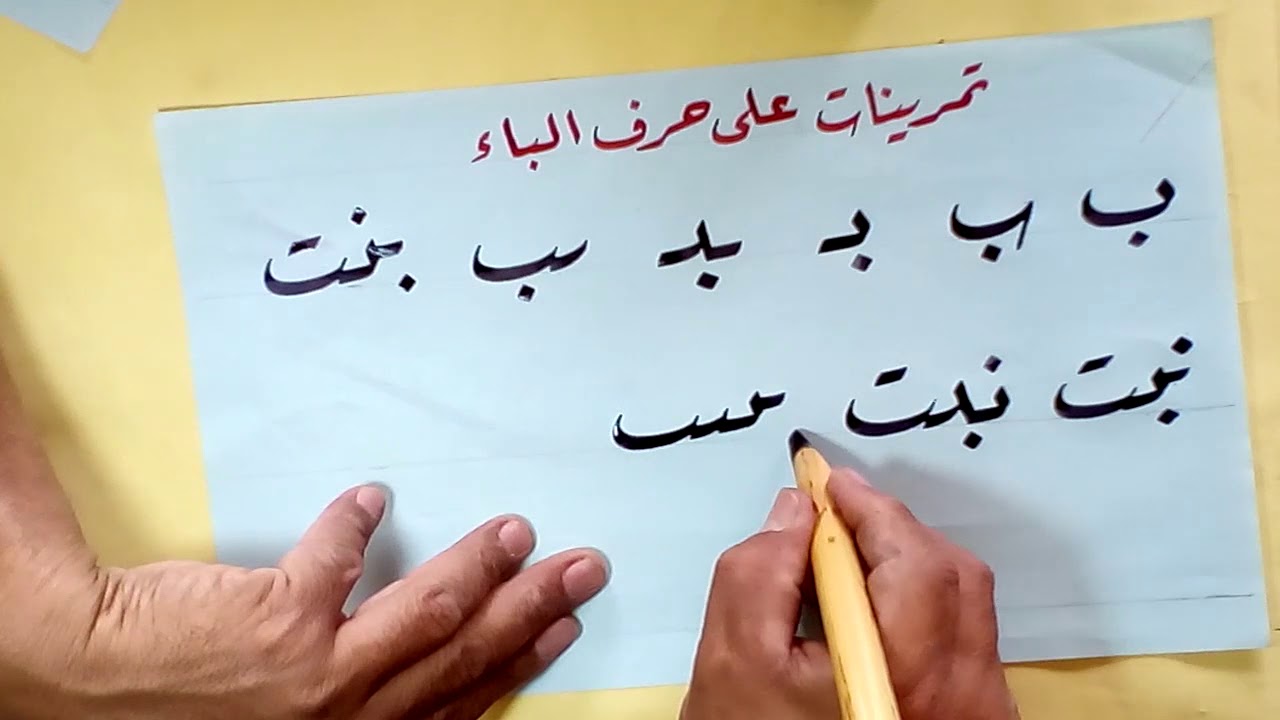 تمرينات على حرف الباء
ب ب بـ ـبـ ـب بنت
نبت نبت